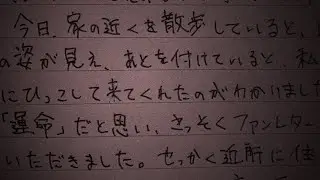 今日、家の近くを散歩していると、
の姿が見え、あとを付けていると、私
にひっこして来てくれたのがわかりました
「運命」だと思い、さっそくファンレター
いただきました。せっかく近所に住